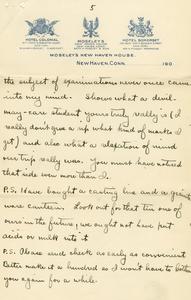 5
HOTEL COLONIAL
MOSELEY'S
HOTEL SOMERSET
MOSELEY'S NEW HAVEN HOUSE.
NEW HAVEN, CONN. 190
the subject of examinations never once came
into my mind. Shows what a devil-
may-care student yours truly really is (I
really don't give a rip what kind of marks I
get) and also what a relaxation of mind
our trip really was. You must have noticed
that side even more than I.
P.S. Have bought a casting line and a
ware canteen. Look out for that tin one of
ours in the future, we ought not have put
acids or milk into it
P.S. Please send check as early as convenient
Better make it a hundred so I won't have to bother
you again for a while.